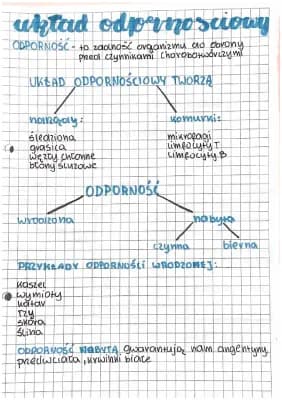 układ odpornościowy
ODPORNOŚĆ - to zdolność organizmu do obrony
przed czynnikami chorobotwórczymi
UKŁAD ODPORNOŚCIOWY TWORZĄ
narządy: komórki:
śledziona mikrofagi
grasica limfocyty T
węzły chłonne limfocyty B
błony śluzowe
ODPORNOŚĆ
wrodzona nabyta
czynna bierna
PRZYKŁADY ODPORNOŚCI WRODZONEJ:
kaszel
wymioty
katar
łzy
skóra
ślina
ODPORNOŚĆ NABYTĄ gwarantują nam angentyny
przeciwciała, krwinki białe